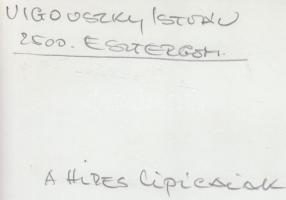 VIGOVSZKY ISTVÁN
2500. ESZTERGOM.
A HÍRES lipicaiak